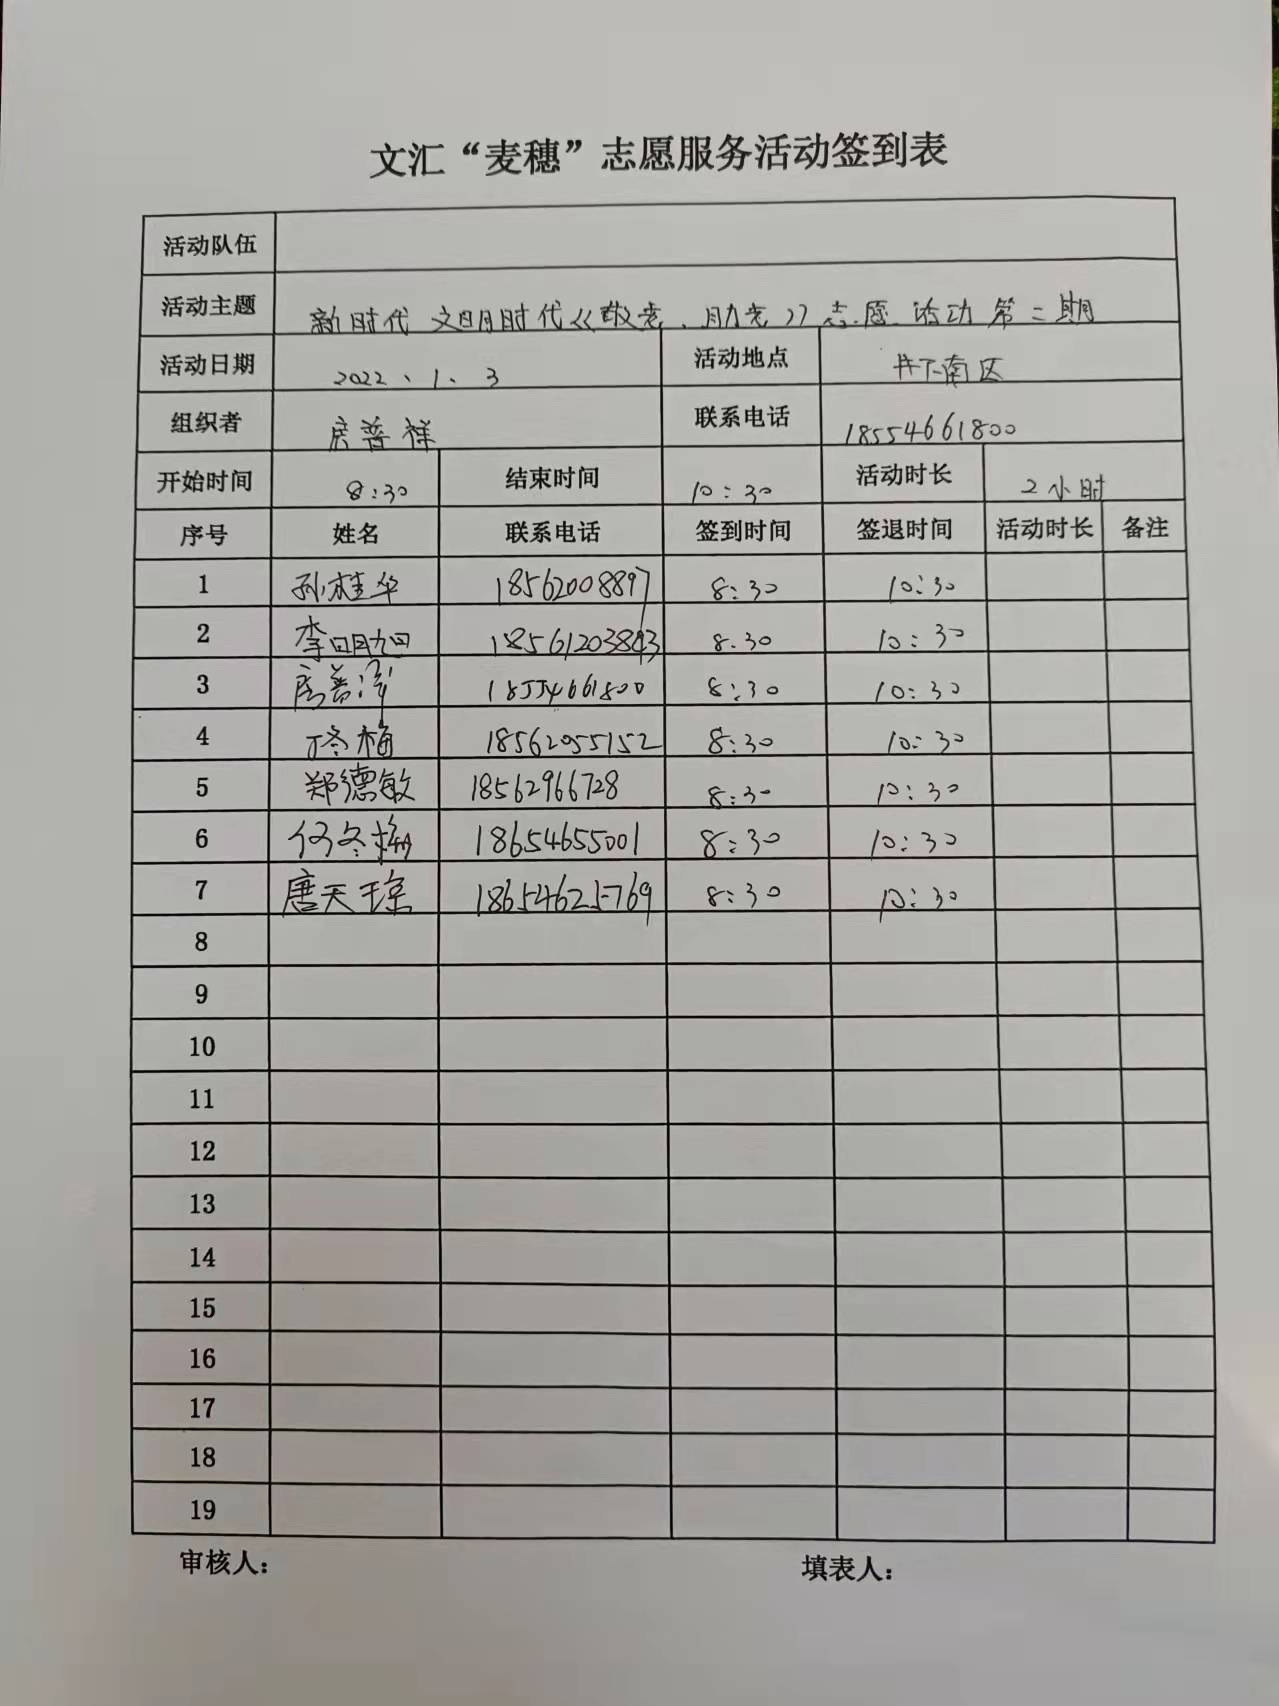 文汇“麦穗”志愿服务活动签到表
活动队伍
活动主题 新时代 文明时代《敬老、助老》志愿活动第二期
活动日期 2022、1、3 活动地点 井下南区
组织者 房普祥 联系电话 18554661800
开始时间 8:30 结束时间 10:30 活动时长 2小时
序号 姓名 联系电话 签到时间 签退时间 活动时长 备注
1 孙桂华 18562008897 8:30 10:30
2 李明旭 18561203843 8.30 10:30
3 18554661800 8:30 10:30
4 丁冬梅 18562055152 8:30 10:30
5 郑德敏 18562966728 8:30 10:30
6 何冬梅 18654655001 8:30 10:30
7 唐天琼 18654625769 8:30 10:30
8
9
10
11
12
13
14
15
16
17
18
19
审核人： 填表人：